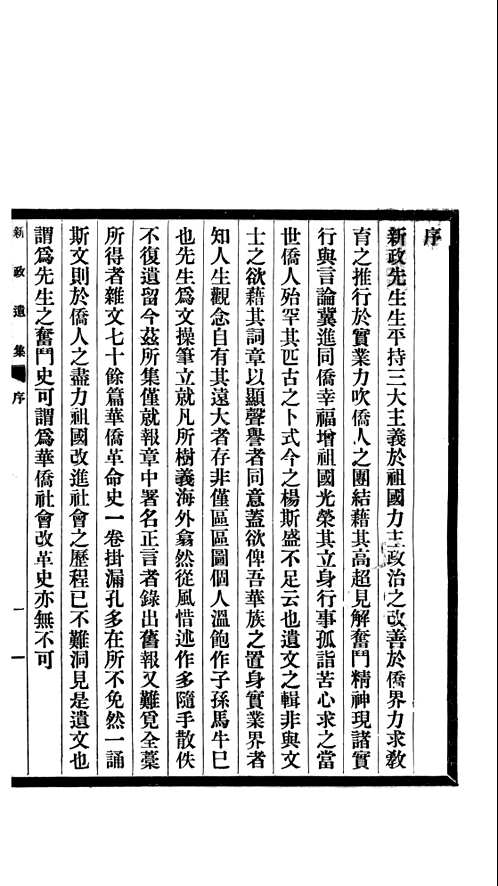 序
新政先生生平持三大主義於祖國力主政治之改善於僑界力求敎
育之推行於實業力吹僑人之團結藉其高超見解奮鬥精神現諸實
行與言論冀進同僑幸福增祖國光榮其立身行事孤詣苦心求之當
世僑人殆罕其匹古之卜式今之楊斯盛不足云也遺文之輯非與文
士之欲藉其詞章以顯聲譽者同意蓋欲俾吾華族之置身實業界者
知人生觀念自有其遠大者存非僅區區圖個人溫飽作子孫馬牛巳
也先生爲文操筆立就凡所樹義海外翕然從風惜述作多隨手散佚
不復遺留今茲所集僅就報章中署名正言者錄出舊報又難覓全藁
所得者雜文七十餘篇華僑革命史一卷掛漏孔多在所不免然一誦
斯文則於僑人之盡力祖國改進社會之歷程已不難洞見是遺文也
謂爲先生之奮鬥史可謂爲華僑社會改革史亦無不可
新政遺集 序 一